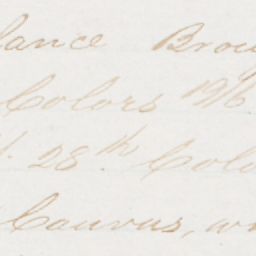 lance Brou
Colors 19/6
28th Colo
Canvas, w